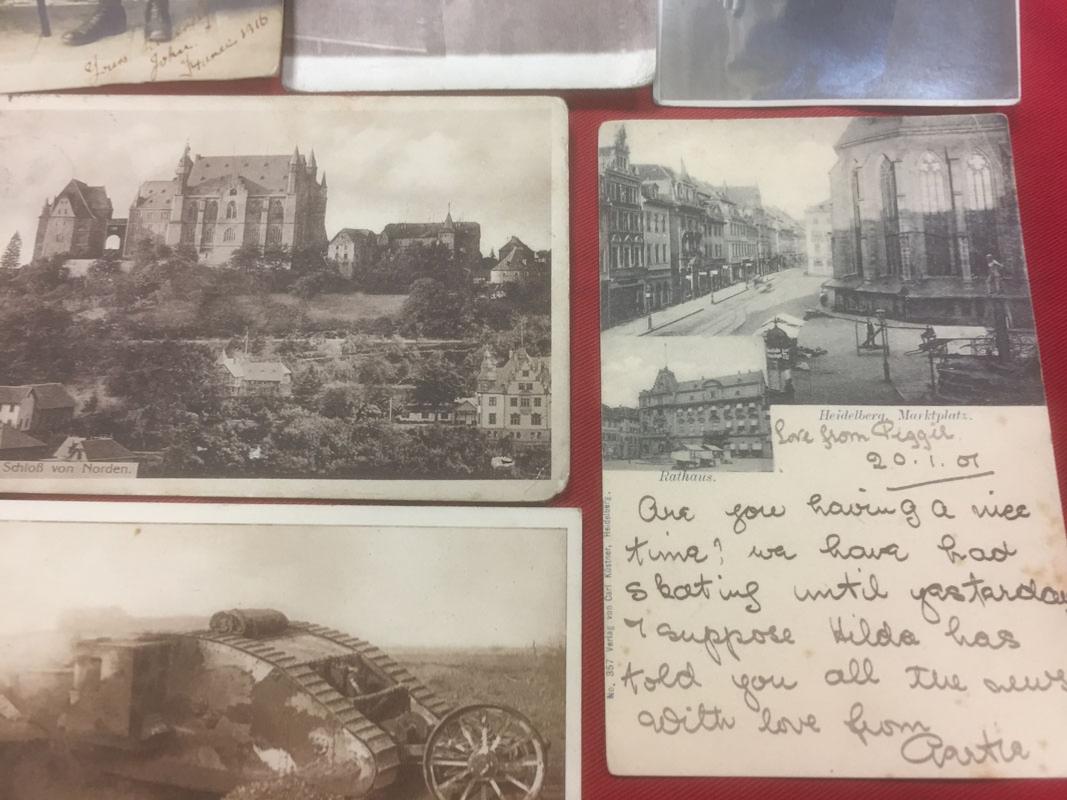 John.
1916
Schloß von Norden.
Heidelberg, Marktplatz.
Rathaus.
Love from
20.1.01
No. 357 Verlag von Carl Köstner, Heidelberg.
Are you having a nice
time? we have had
skating until yastarday
I suppose Hilda has
told you all the news
With love from